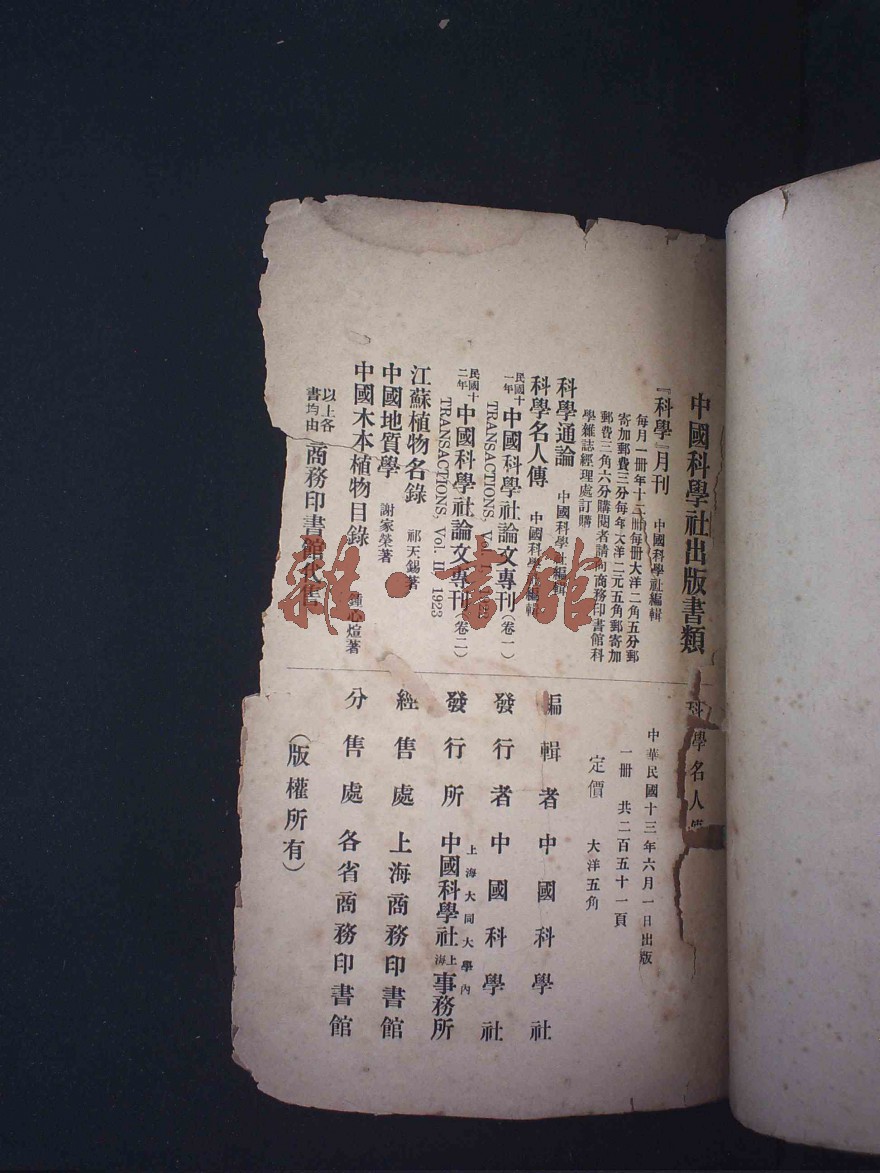 中國科學社出版書類
『科學』月刊 中國科學社編輯
每月一册年十二册每册大洋二角五分郵
寄加郵費三分每年大洋二元五角郵寄加
郵費三角六分購閱者請向商務印書館科
學雜誌經理處訂購
科學通論 中國科學社編輯
科學名人傳 中國科學社編輯
民國十一年 中國科學社論文專刊(卷一)
TRANSACTIONS, Vol. I
民國十二年 中國科學社論文專刊(卷二)
TRANSACTIONS, Vol. II 1923
江蘇植物名錄 祁天錫著
中國地質學 謝家榮著
中國木本植物目錄 鍾心煊著
以上各書均由商務印書館代售
科學名人傳
中華民國十三年六月一日出版
一册 共二百五十一頁
定價 大洋五角
編輯者 中國科學社
發行者 中國科學社
上海大同大學內
發行所 中國科學社上海事務所
經售處 上海商務印書館
分售處 各省商務印書館
(版權所有)
雜·書館